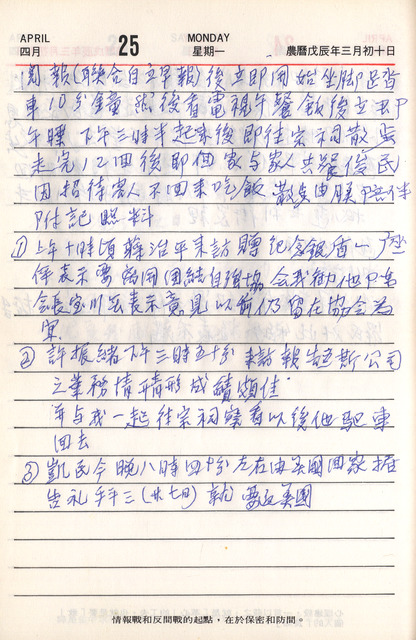 APRIL
四月
25
MONDAY
星期一
農曆戊辰年三月初十日
閱報(聯合自立早報)後立即開始坐脚足踏
車10分鐘 然後看電視午餐飯後立即
午睡 下午三時半起來後即往宗祠散
走完12回後即回家与家人共餐俊民
因招待客人不回來吃飯 散步由 陪伴
附記照料
① 上午十時頃 治平來訪贈紀念銀盾一座
表示要 開團結自強協會我勸他
會長 表示意見以 仍留在協會為
宜
② 許振緒下午三時五十分來訪報告 斯公司
之業務情形成績頗佳
并与我一起往宗祠 看以後他駛車
回去
③ 凱民今晚八時四十分左右由美國回家据
告礼拜三(廿七日)就要返美國
情報戰和反間戰的起點，在於保密和防間。